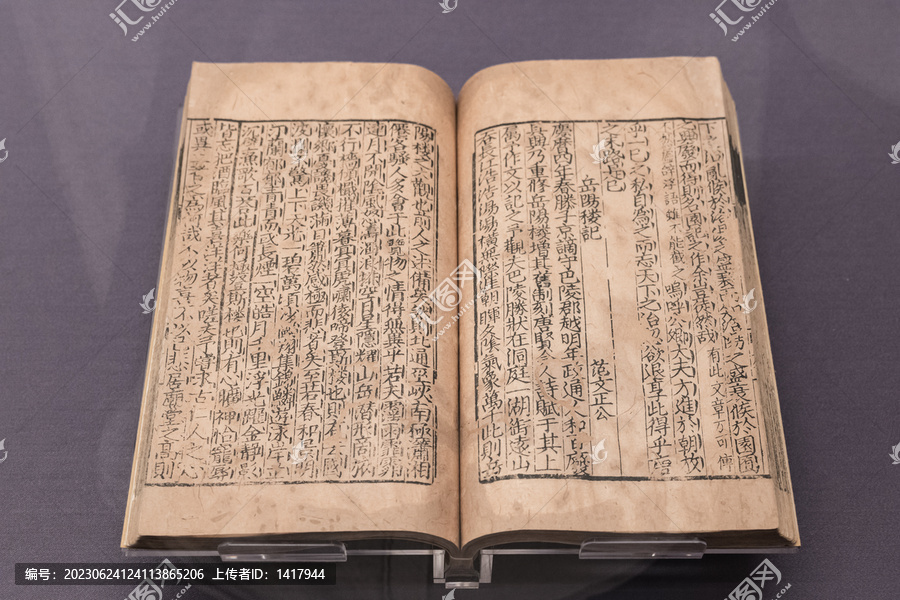 候於洛陽之盛衰候於園囿
之廢興而得則名園記之作余豈徒然哉有此文章方可傳
不能戲之嗚呼公卿大夫方進於朝放
乎一己之私自為之而忘天下之治忽欲退享此得乎唐
之末路是已
岳陽樓記
范文正公
慶曆四年春滕子京謫守巴陵郡越明年政通人和百廢
具興乃重修岳陽樓增其舊制刻唐賢今人詩賦于其上
屬予作文以記之予觀夫巴陵勝狀在洞庭一湖銜遠山
吞長江浩浩湯湯橫無際涯朝暉夕陰氣象萬千此則岳
陽樓之大觀也前人之述備矣然則北通巫峽南極瀟湘
遷客騷人多會于此覽物之情得無異乎若夫霪雨霏霏
連月不開陰風怒號濁浪排空日星隱耀山岳潛形商旅
不行檣傾楫摧薄暮冥冥虎嘯猿啼登斯樓也則有去國
懷鄉憂讒畏譏滿目蕭然感極而悲者矣至若春和景明
波瀾不驚上下天光一碧萬頃沙鷗翔集錦鱗游泳岸芷
汀蘭郁郁青青而或長煙一空皓月千里浮光躍金靜影
沉璧漁歌互答此樂何極登斯樓也則有心曠神怡寵辱
皆忘把酒臨風其喜洋洋者矣嗟夫予嘗求古仁人之心
或異二者之為何哉不以物喜不以己悲居廟堂之高則
编号：20230624124113865206 上传者ID：1417944